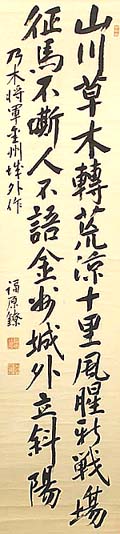 山川草木轉荒涼十里風腥新戰場
征馬不嘶人不語金州城外立斜陽
乃木将軍金州城外作
福原鐐